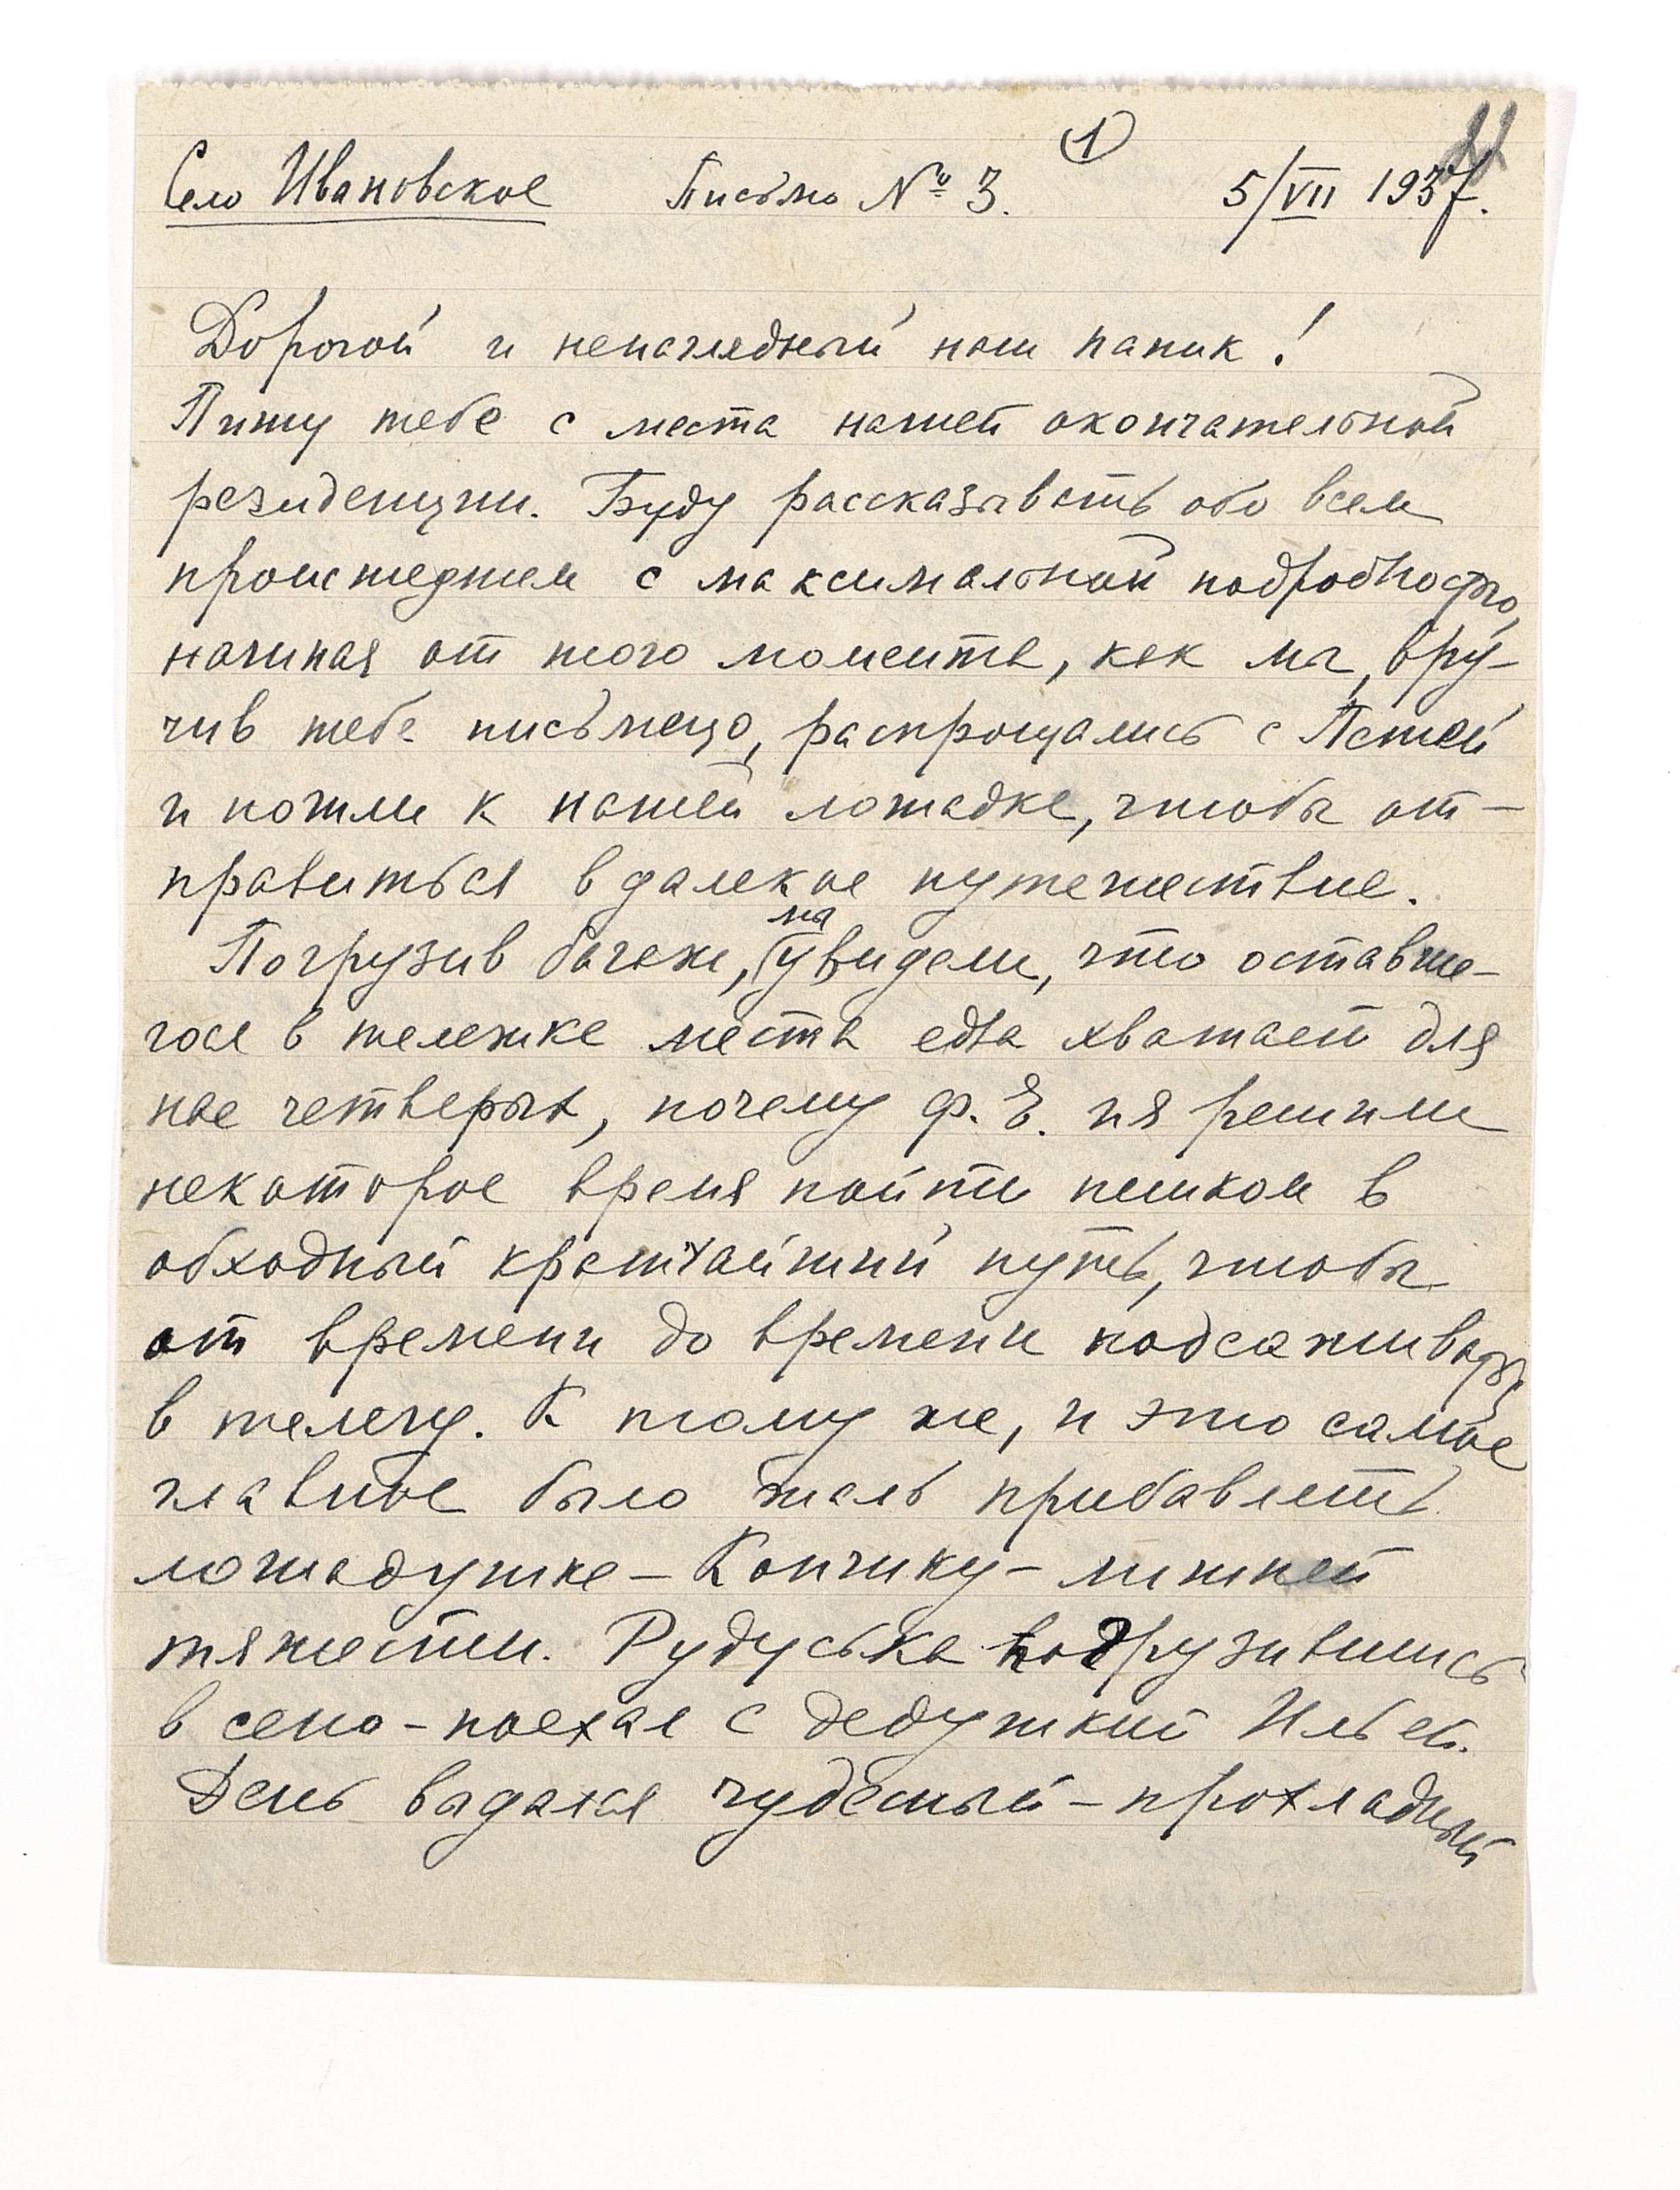 1
Село Ивановское Письмо № 3. 5/VII 1937.
Дорогой и ненаглядный наш папик!
Пишу тебе с места нашей окончательной
резиденции. Буду рассказывать обо всем
происшедшем с максимальной подробностью,
начиная от того момента, как мы, вру-
чив тебе письмецо, распрощались с Асей
и пошли к нашей лошадке, чтобы от-
правиться в далекое путешествие.
Погрузив багаж, мы увидели, что оставше-
гося в тележке места едва хватает для
нас четверых, почему Ф. Е. и я решили
некоторое время пойти пешком в
обходный кратчайший путь, чтобы
от времени до времени подсаживаться
в телегу. К тому же, и это самое
главное было жаль прибавлять
лошадушке – Кончику – лишней
тяжести. Рудуська погрузившись
в сено – поехал с дедушкой Ильей.
День выдался чудесный – прохладный